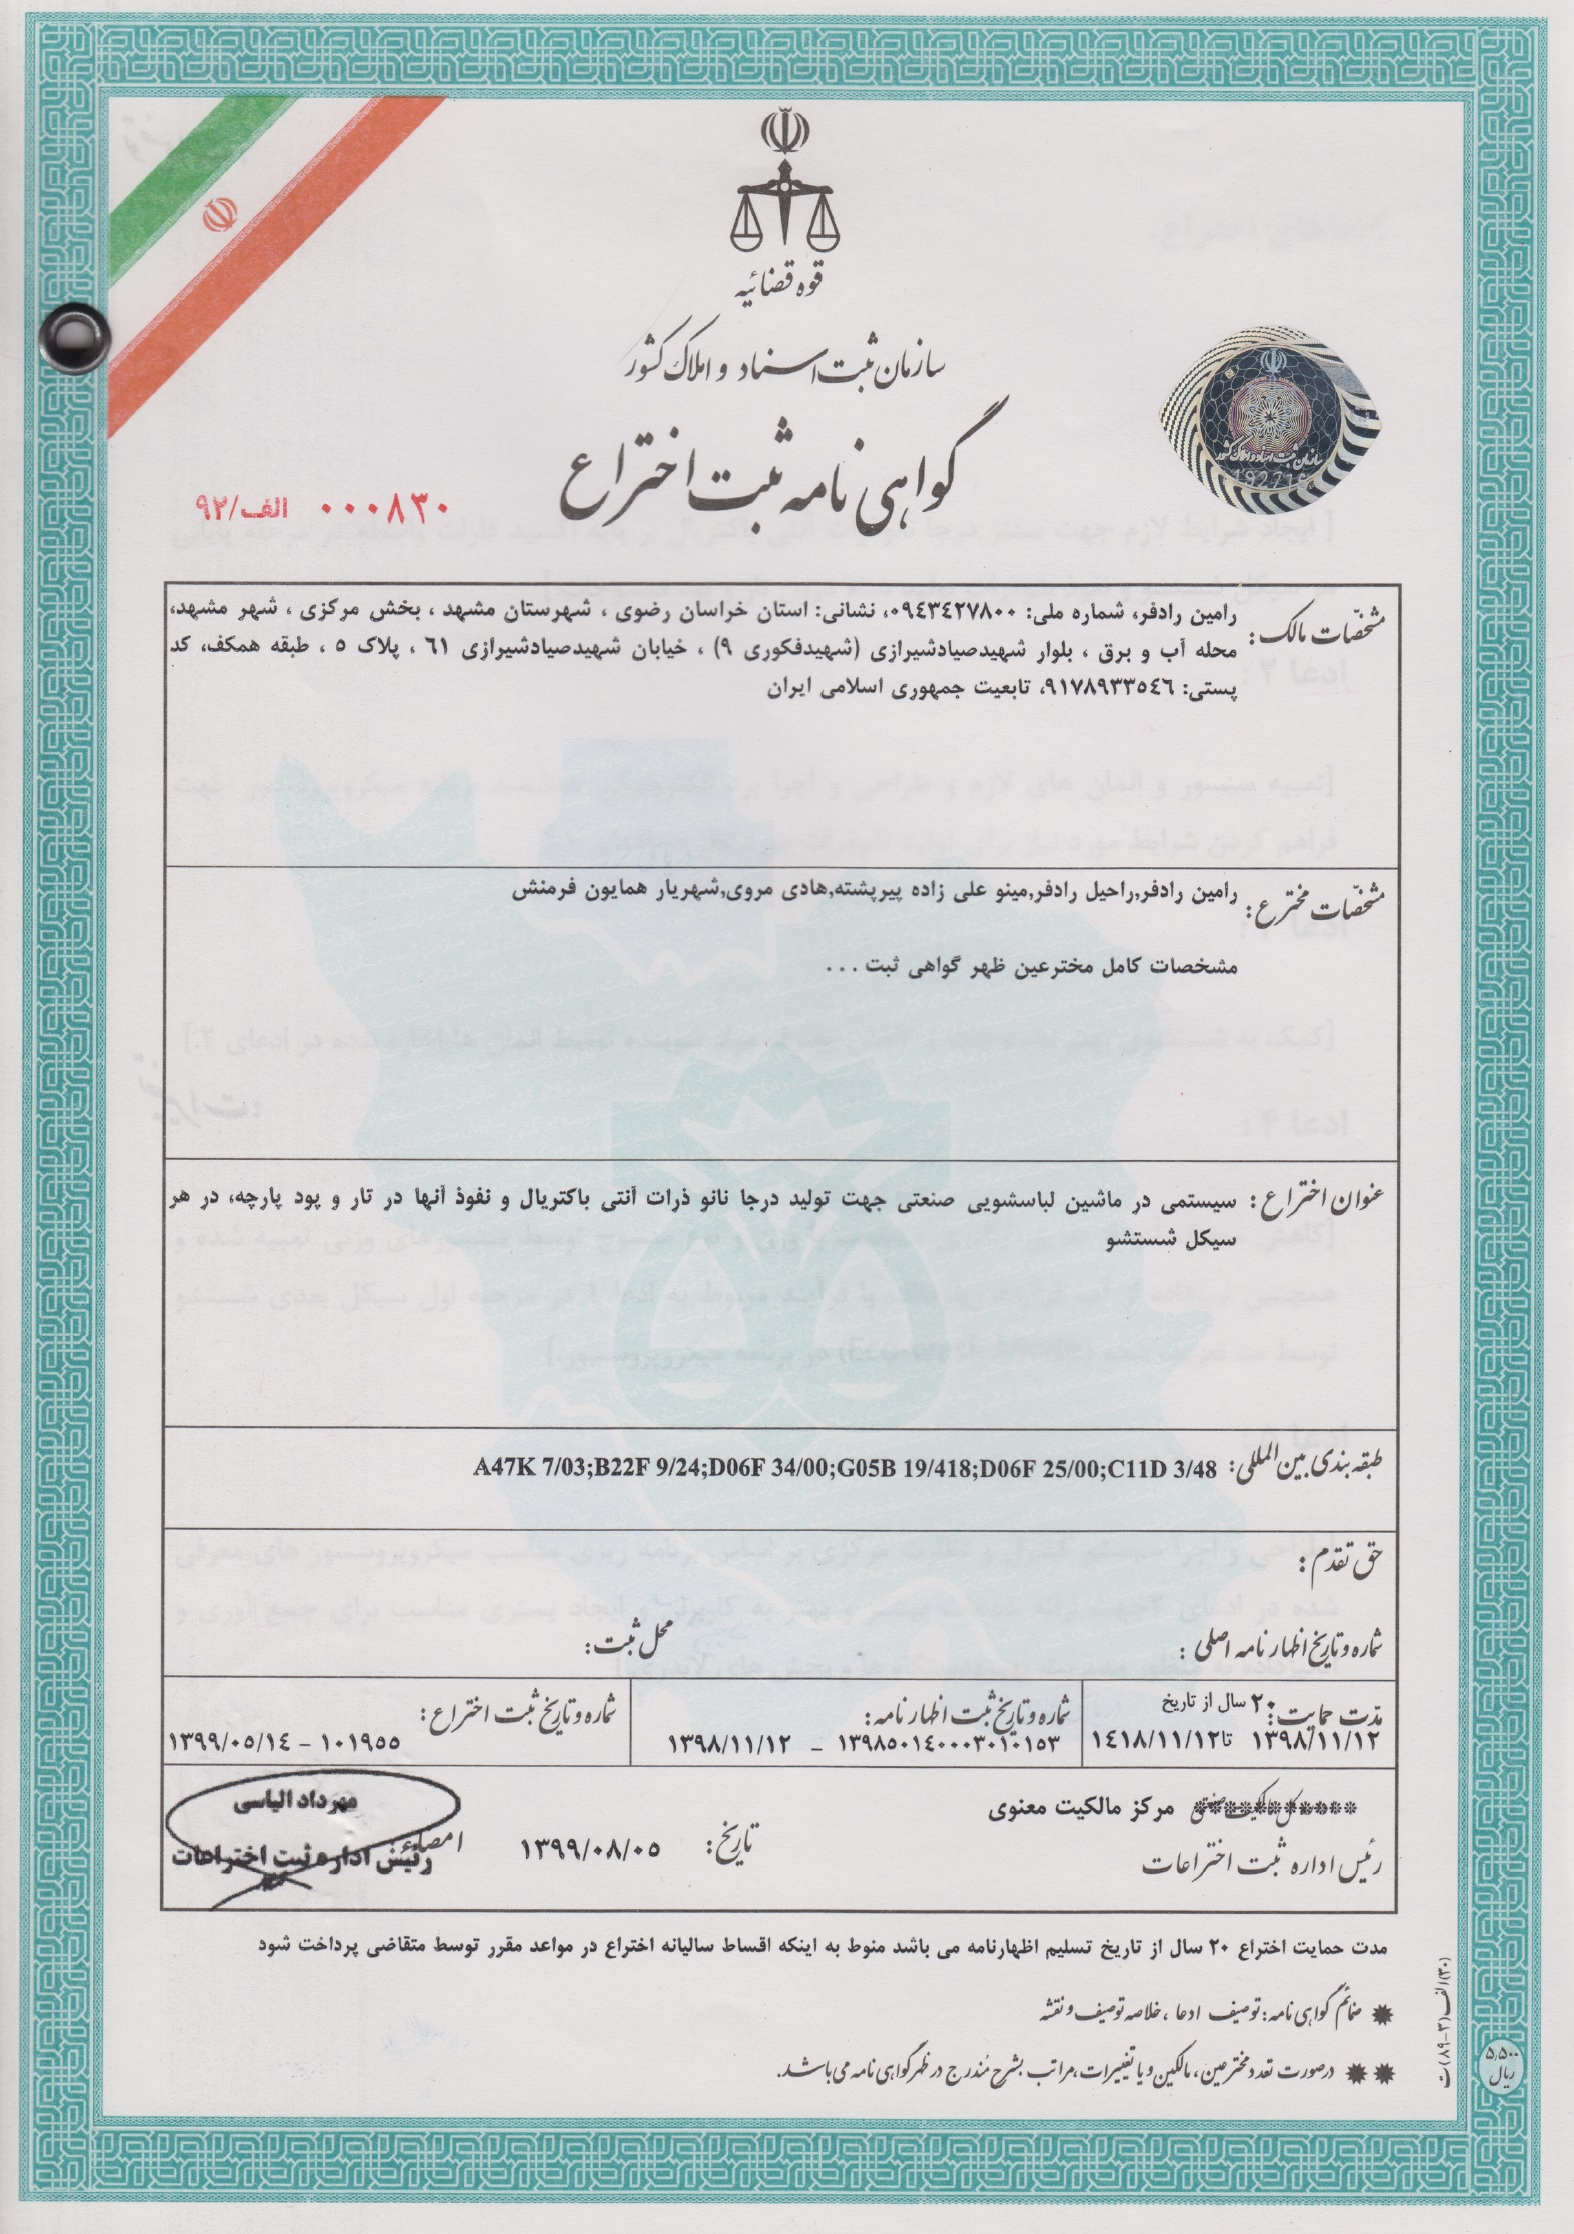 قوه قضائیه
سازمان ثبت اسناد و املاک کشور
گواهی نامه ثبت اختراع
سازمان ثبت اسناد و املاک کشور
الف/۹۲ ۰۰۰۸۳۰
مشخصّات مالک: رامین رادفر، شماره ملی: ۰۹۴۳۴۲۷۸۰۰، نشانی: استان خراسان رضوی ، شهرستان مشهد ، بخش مرکزی ، شهر مشهد،
محله آب و برق ، بلوار شهیدصیادشیرازی (شهیدفکوری ۹) ، خیابان شهیدصیادشیرازی ۶۱ ، پلاک ۵ ، طبقه همکف، کد
پستی: ۹۱۷۸۹۳۳۵۴۶، تابعیت جمهوری اسلامی ایران
مشخصّات مخترع: رامین رادفر,راحیل رادفر,مینو علی زاده پیرپشته,هادی مروی,شهریار همایون فرمنش
مشخصات کامل مخترعین ظهر گواهی ثبت ...
عنوان اختراع: سیستمی در ماشین لباسشویی صنعتی جهت تولید درجا نانو ذرات آنتی باکتریال و نفوذ آنها در تار و پود پارچه، در هر
سیکل شستشو
طبقه بندی بین المللی: A47K 7/03;B22F 9/24;D06F 34/00;G05B 19/418;D06F 25/00;C11D 3/48
حق تقدم:
شماره و تاریخ اظهارنامه اصلی: محل ثبت:
مدّت حمایت: ۲۰ سال از تاریخ
۱۳۹۸/۱۱/۱۲ تا ۱۴۱۸/۱۱/۱۲
شماره و تاریخ ثبت اظهارنامه:
۱۳۹۸۵۰۱۴۰۰۰۳۰۱۰۱۵۳ – ۱۳۹۸/۱۱/۱۲
شماره و تاریخ ثبت اختراع:
۱۰۱۹۵۵ – ۱۳۹۹/۰۵/۱۴
مرکز مالکیت معنوی
رئیس اداره ثبت اختراعات
تاریخ: ۱۳۹۹/۰۸/۰۵
امضاء
مهرداد الیاسی
رئیس اداره ثبت اختراعات
مدت حمایت اختراع ۲۰ سال از تاریخ تسلیم اظهارنامه می باشد منوط به اینکه اقساط سالیانه اختراع در مواعد مقرر توسط متقاضی پرداخت شود
ضمائم گواهی نامه: توصیف ادعا ، خلاصه توصیف و نقشه
درصورت تعدد مخترعین، مالکین و یا تغییرات، مراتب بشرح مُندرج در ظهر گواهی نامه می باشد.
۵,۵۰۰
ریال